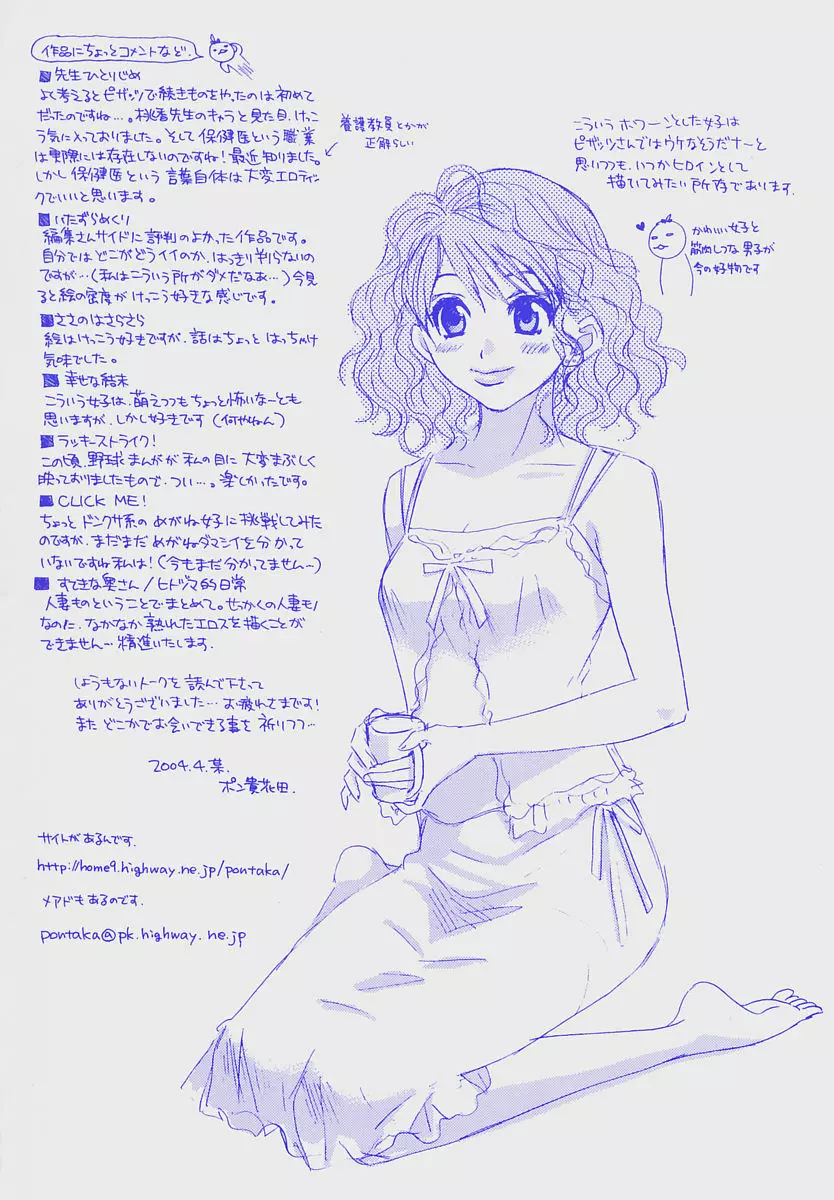 作品にちょっとコメントなど.
■先生ひとりじめ
よく考えるとピザッツで続きものをやったのは初めて
だったのですね…。桃香先生のキャラと見た目、けっこ
う気に入っておりました。そして保健医という職業
は実際には存在しないのですね!最近知りました。
しかし保健医という言葉自体は大変エロティッ
クでいいと思います。
養護教員とかが
正解らしい
■いたずらめくり
編集さんサイドに評判のよかった作品です。
自分ではどこがどうイイのか、はっきり判らないの
ですが…(私はこういう所がダメだなあ…)今見
ると絵の密度がけっこう好きな感じです。
■ささのはさらさら
絵はけっこう好きですが、話はちょっとはっちゃけ
気味でした。
■幸せな結末
こういう女子は、萌えつつもちょっと怖いな〜とも
思いますが、しかし好きです(何やねん)
■ラッキーストライク!
この頃、野球まんがが私の目に大変まぶしく
映っておりましたもので、つい…。楽しかったです。
■CLICK ME!
ちょっとドンクサ系のめがね女子に挑戦してみた
のですが、まだまだめがねダマシイを分かって
いないですね私は!(今もまだ分かってません…)
■すてきな奥さん/ヒトヅマ的日常
人妻ものということでまとめて。せっかくの人妻モノ
なのに、なかなか熟れたエロスを描くことが
できません…精進いたします.
しょうもないトークを読んで下さって
ありがとうございました…お疲れさまです!
またどこかでお会いできる事を祈りつつ…
2004.4.葉.
ポン貴花田.
サイトがあるんです.
http://home9.highway.ne.jp/pontaka/
メアドもあるのです.
pontaka@pk.highway.ne.jp
こういうホワーンとした女子は
ピザッツさんではウケなそうだナーと
思いつつも、いつかヒロインとして
描いてみたい所存であります.
かわいい女子と
筋肉しつな男子が
今の好物です